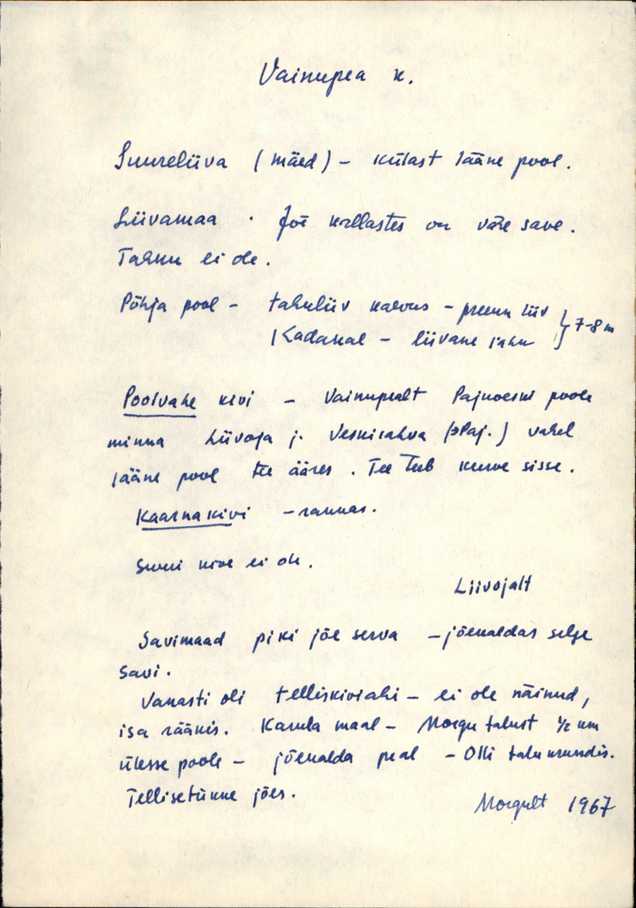 Vainupea k.
Suureliiva (mäed) - külast lääne pool.
Liivamaa. Jõe kallastes on vähe save.
Tahku ei ole.
Põhja pool - tahuliiv kaevus - preenu liiv } 7-8 m
Kadakal - liivane
Poolvahe kivi - Vainupealt Pajuveski poole
minna Liivoja j. Veskirahva (Paj.) vahel
lääne pool tee ääres. Tee teeb kurve sisse.
Kaarnakivi - rannas.
Suuri kive ei ole.
Liivojalt
Savimaad piki jõe serva - jõekaldas selge
savi.
Vanasti oli telliskiviahi - ei ole näinud,
isa rääkis. Karula maal - Morgu talust 1/2 km
ülesse poole - jõekalda peal - Olli talu krundis.
Tellisetükke jões.
Morgult 1967